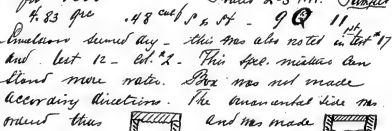 4.83 gpc .48 cu ft S & St - 9 Q 11
Emulsion seemed dry - this was also noted in 1st. test #17
and test 12 - Col. #2 - This spec. mixture can
stand more water. Box was not made
according directions. The ornamental side was
ordered thus and was made